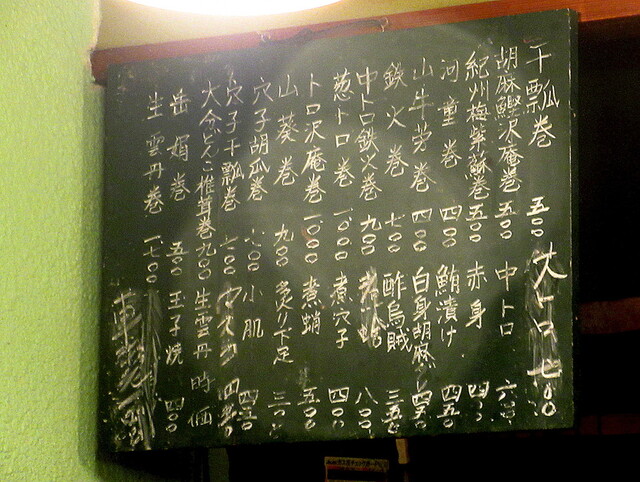 干瓢巻 五〇〇
胡麻鰹沢庵巻 五〇〇
紀州梅紫蘇巻 五〇〇
河童巻 四〇〇
山牛蒡巻 四〇〇
鉄火巻 七〇〇
中トロ鉄火巻 九〇〇
葱トロ巻 一、〇〇〇
トロ沢庵巻 一、〇〇〇
山葵巻 九〇〇
穴子胡瓜巻
穴子干瓢巻
椎茸巻 九〇〇
岳娟巻 五〇〇
生雲丹巻 一、七〇〇
大トロ 七〇〇
中トロ 六〇〇
赤身
鮪漬け 四五〇
白身胡麻
酢烏賊 三五〇
八〇〇
煮穴子 四〇〇
煮蛸 五〇〇
炙り下足 三〇〇
小肌
生雲丹 時価
玉子焼 四〇〇